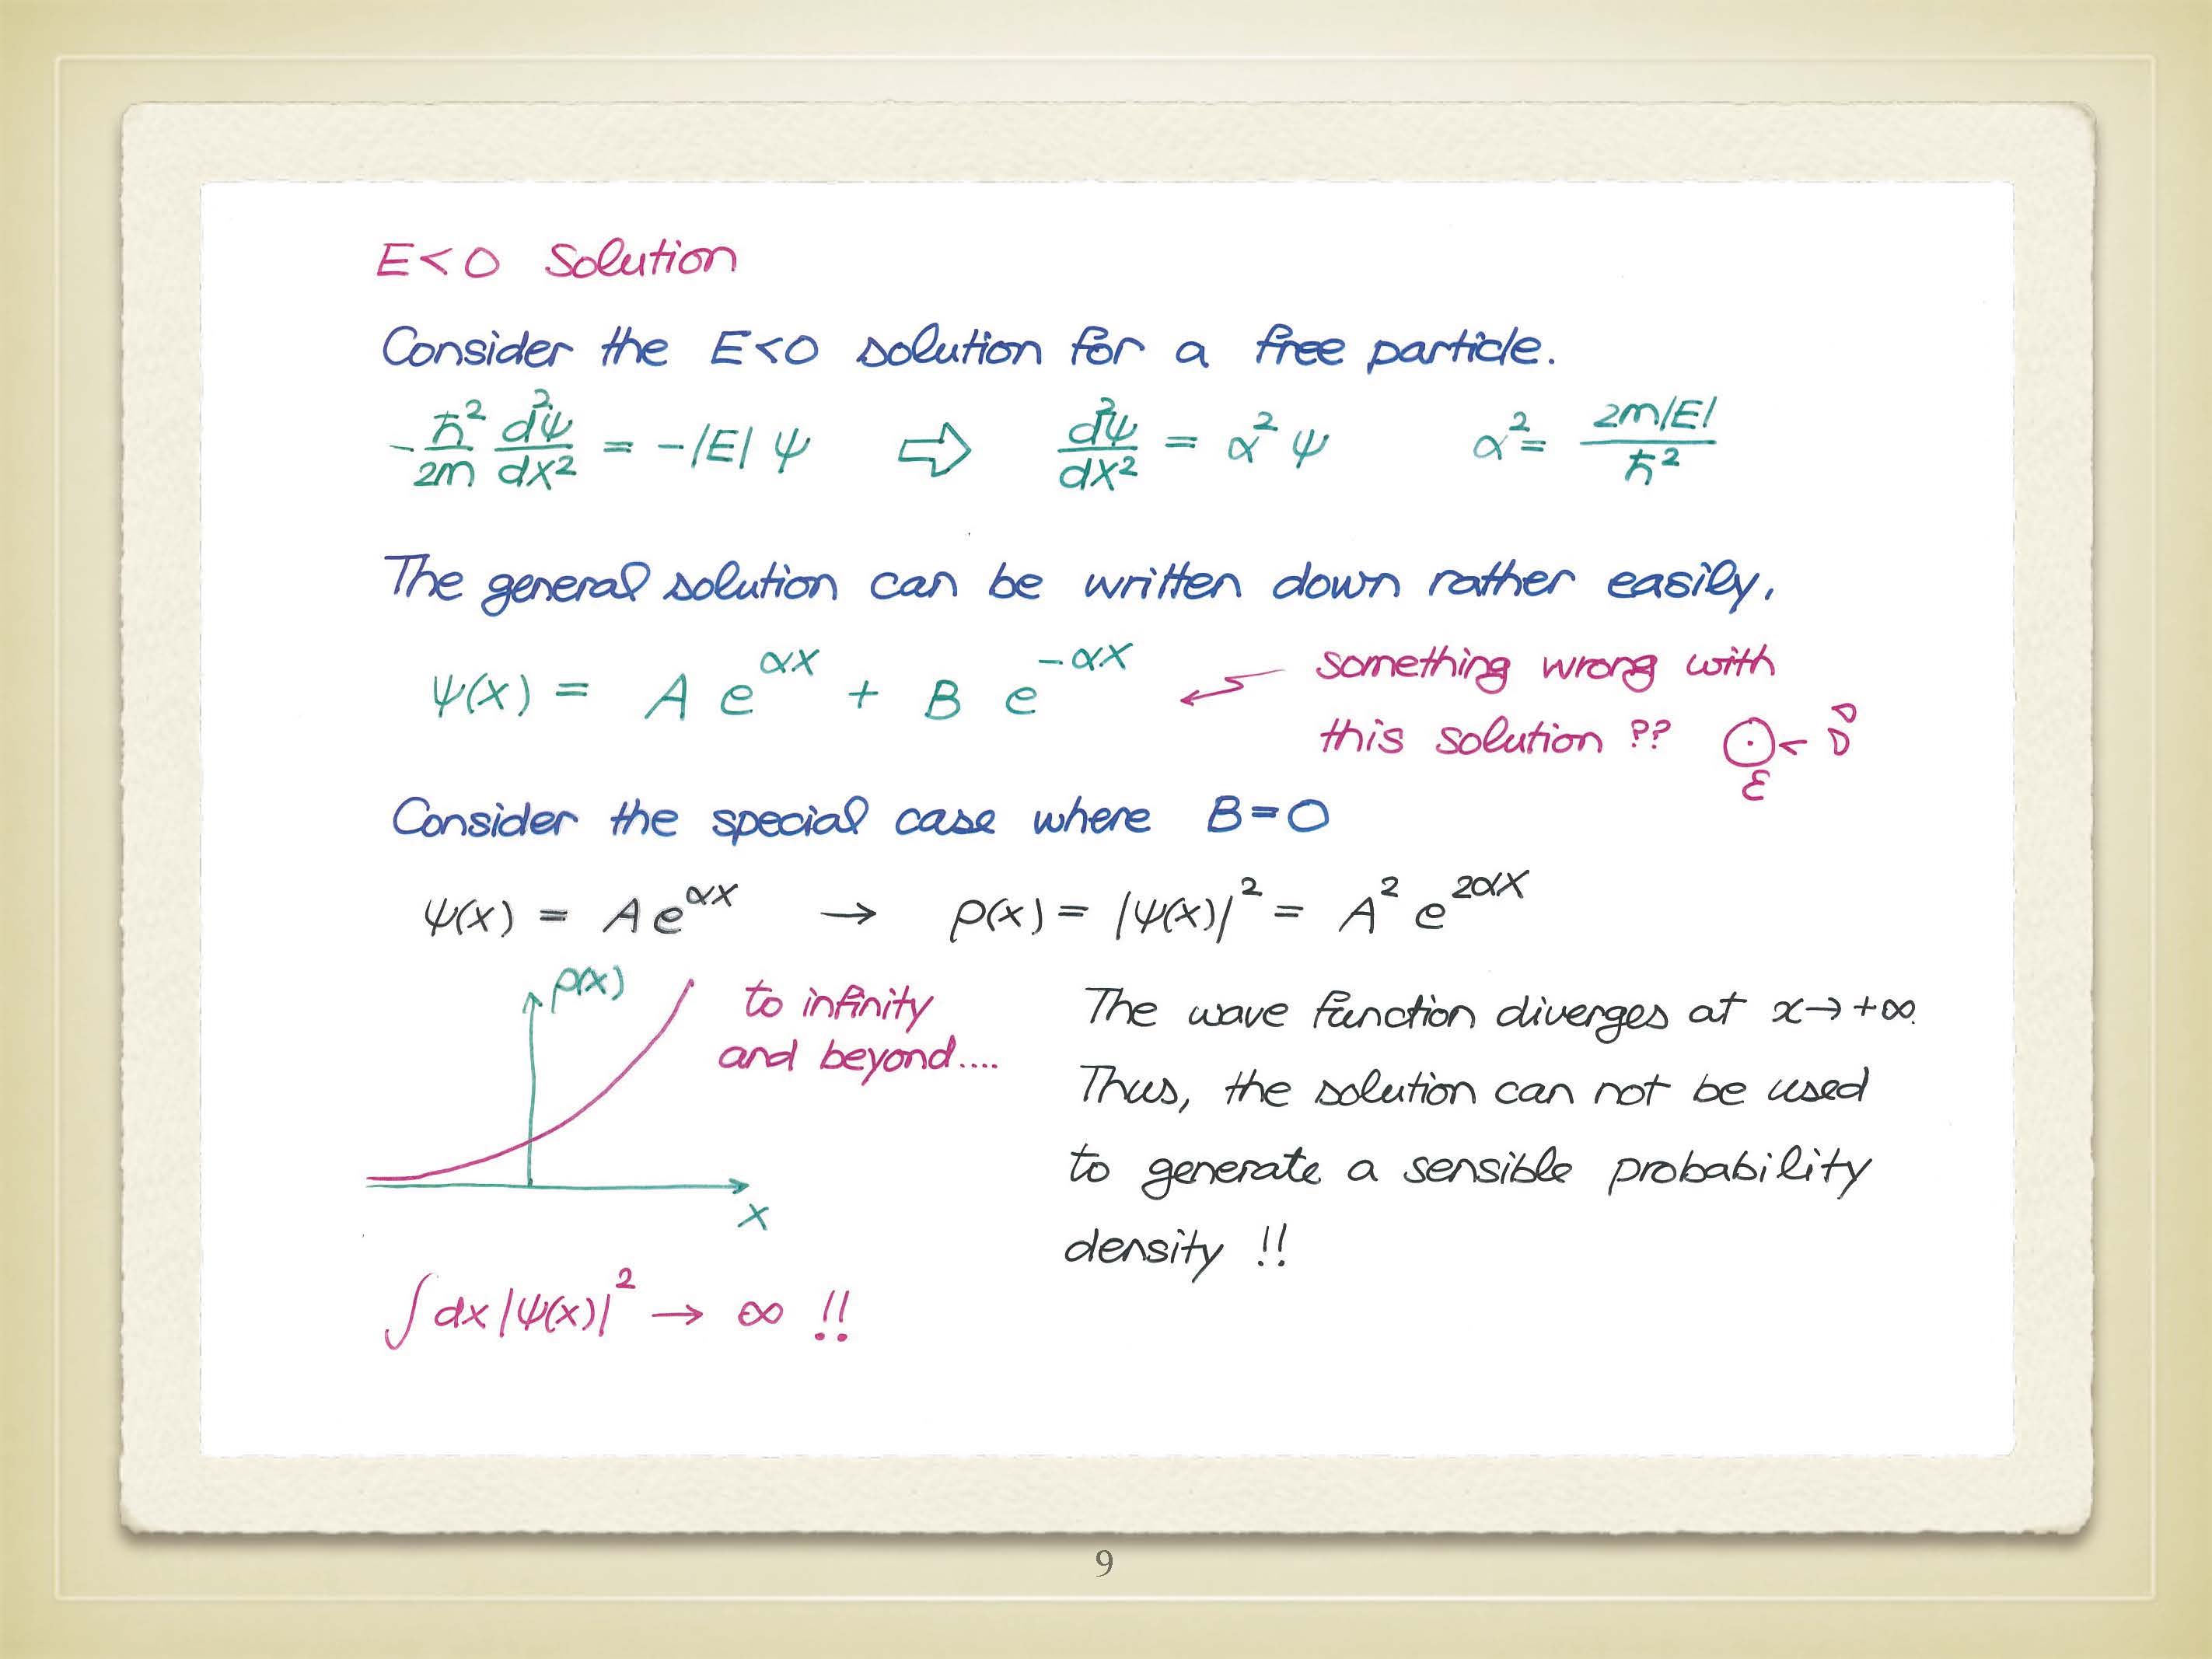 E<0 Solution
Consider the E<0 solution for a free particle.
-ℏ²/2m d²ψ/dx² = -|E| ψ ⇨ d²ψ/dx² = α² ψ α² = 2m|E|/ℏ²
The general solution can be written down rather easily,
ψ(x) = A e^{αx} + B e^{-αx}
something wrong with
this solution ??
Consider the special case where B=0
ψ(x) = A e^{αx} → ρ(x) = |ψ(x)|² = A² e^{2αx}
ρ(x)
to infinity
and beyond....
x
The wave function diverges at x→+∞.
Thus, the solution can not be used
to generate a sensible probability
density !!
∫dx|ψ(x)|² → ∞ !!
9